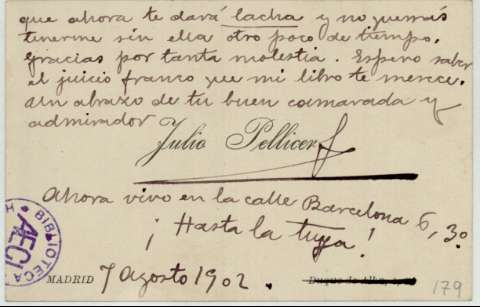 que ahora te dará lacha y no quemás
tenerme sin ella otro poco de tiempo.
Gracias por tanta molestia. Espero saber
el juicio franco que mi libro te merece.
Un abrazo de tu buen camarada y
admirador
Julio Pellicer
Ahora vivo en la calle Barcelona 6, 3º
¡Hasta la tuya!
MADRID 7 Agosto 1902.
Duque de Alba,
179
BIBLIOTECA
AECI